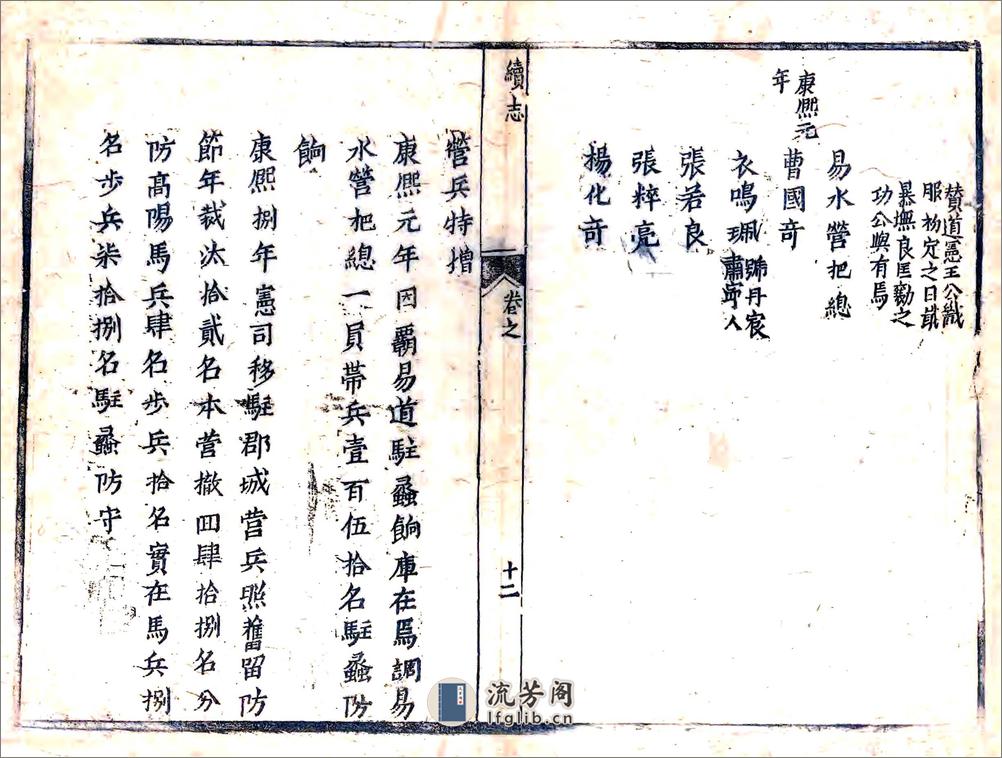 贊道憲王公議
服初定之日戢
暴撫良匡勷之
功公與有焉
易水營把總
康熙元
年
曹國奇
衣鳴珮 號丹宸
肅寧人
張若良
張粹亮
楊化奇
續志
卷之
十二
營兵特增
康熙元年因霸易道駐蠡餉庫在焉調易
水營把總一員帶兵壹百伍拾名駐蠡防
餉
康熙捌年憲司移駐郡城營兵照舊留防
節年裁汰拾貳名本營撤回肆拾捌名分
防高陽馬兵肆名步兵拾名實在馬兵捌
名步兵柒拾捌名駐蠡防守
流芳阁
lfglib.cn